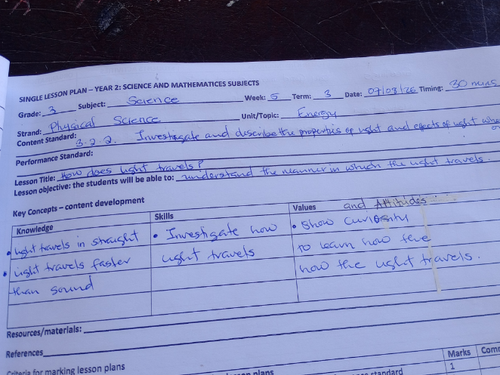 SINGLE LESSON PLAN – YEAR 2: SCIENCE AND MATHEMATICES SUBJECTS
Grade: 3 Subject: Science Week: 5 Term: 3 Date: 07/08/26 Timing: 30 mins
Strand: Physical Science Unit/Topic: Energy
Content Standard: 3.2.2. Investigate and describe the properties of light and effects of light when
Performance Standard:
Lesson Title: How does light travels?
Lesson objective: the students will be able to: understand the manner in which the light travels.
Key Concepts – content development
Knowledge Skills Values and Attitudes
• light travels in straight • Investigate how • Show curiosity
• light travels faster light travels to learn how the
than sound how the light travels.
Resources/materials:
References
Criteria for marking lesson plans Marks
1